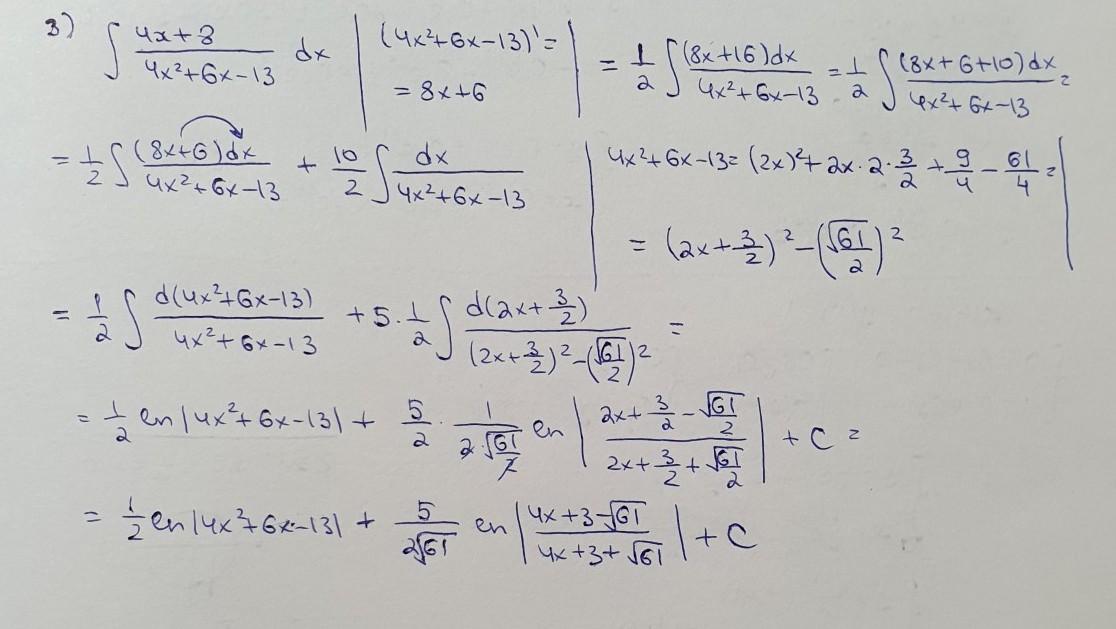 3) ∫ (4x+8)/(4x²+6x−13) dx | (4x²+6x−13)' = = 8x+6 | = 1/2 ∫ (8x+16)dx/(4x²+6x−13) = 1/2 ∫ (8x+6+10)dx/(4x²+6x−13) =
= 1/2 ∫ (8x+6)dx/(4x²+6x−13) + 10/2 ∫ dx/(4x²+6x−13) | 4x²+6x−13 = (2x)²+2x·2·3/2+9/4−61/4 =
= (2x+3/2)²−(√61/2)² |
= 1/2 ∫ d(4x²+6x−13)/(4x²+6x−13) + 5·1/2 ∫ d(2x+3/2)/((2x+3/2)²−(√61/2)²) =
= 1/2 ln|4x²+6x−13| + 5/2 · 1/(2·√61/2) ln|(2x+3/2−√61/2)/(2x+3/2+√61/2)| + C =
= 1/2 ln|4x²+6x−13| + 5/(2√61) ln|(4x+3−√61)/(4x+3+√61)| + C